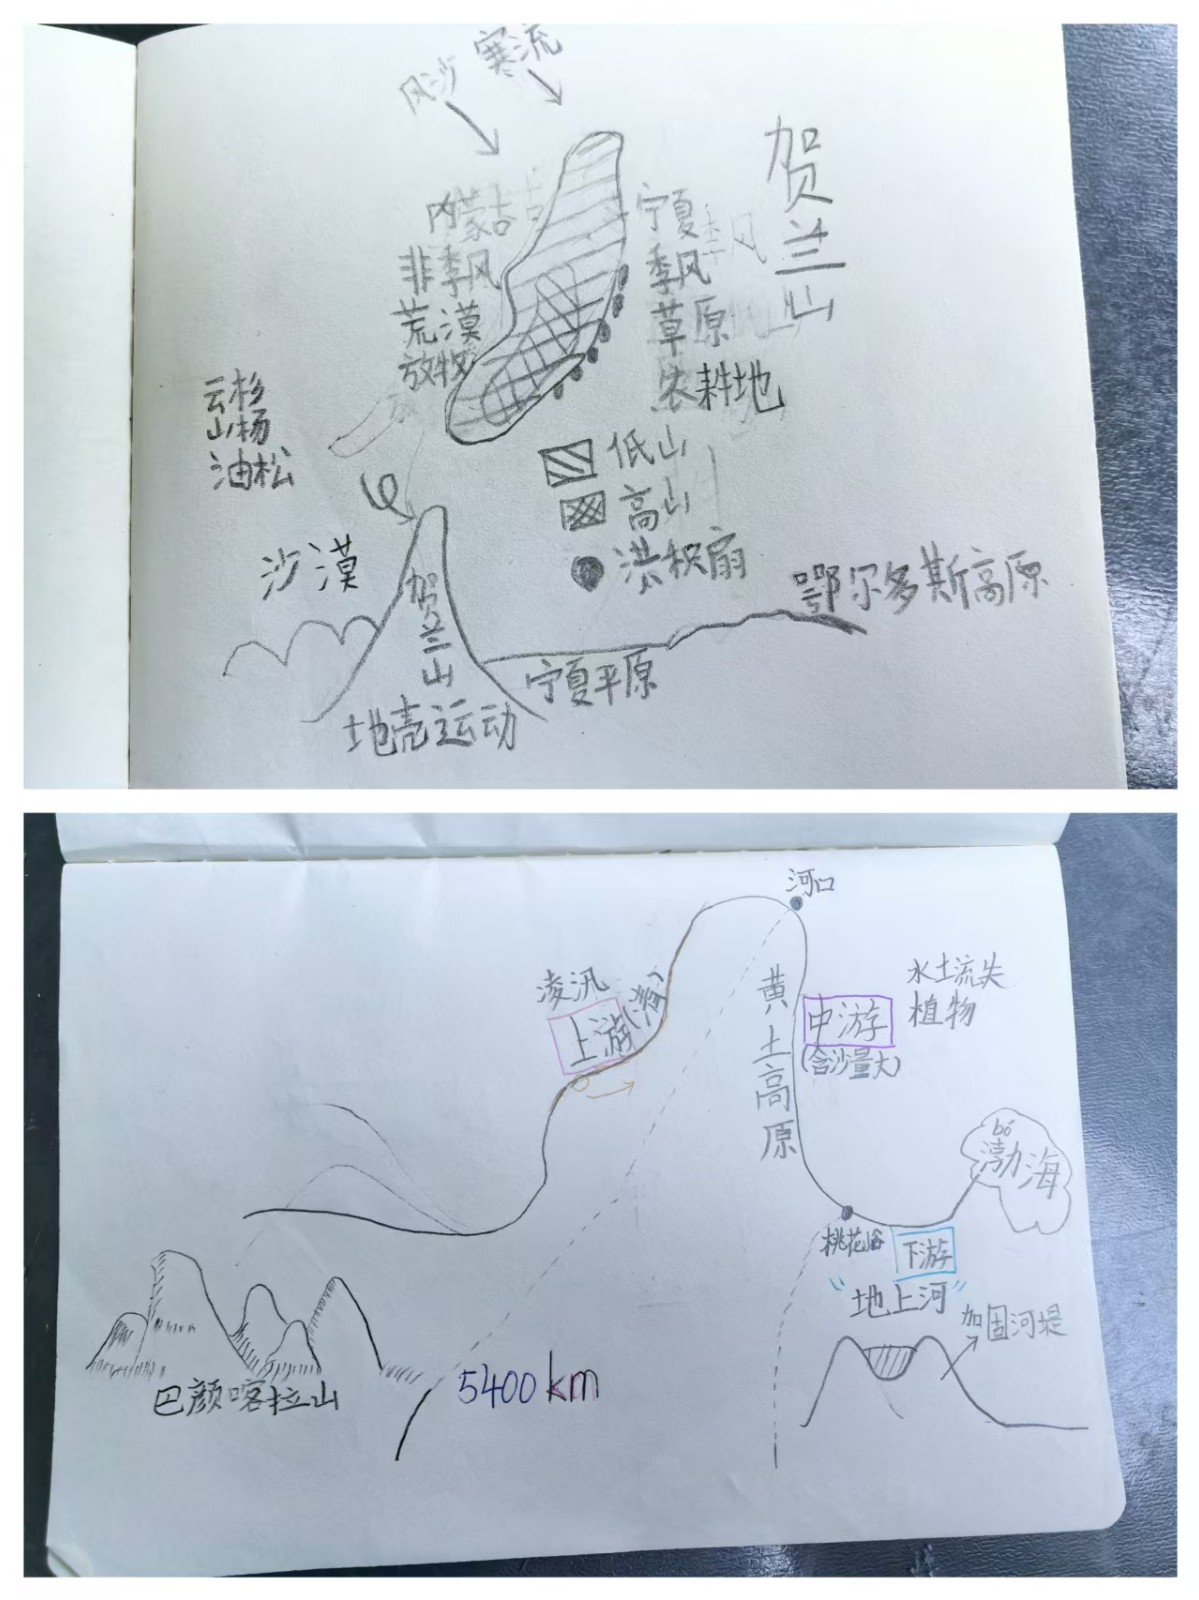 风沙 寒流
贺兰山
内蒙古
非季风
荒漠
放牧
宁夏
季风
草原
农耕地
云杉
山杨
油松
低山
高山
洪积扇
沙漠
贺兰山
地壳运动
宁夏平原
鄂尔多斯高原
河口
凌汛
上游(清)
黄土高原
中游
(含沙量大)
水土流失
植物
bó
渤海
桃花峪
下游
"地上河"
加固河堤
巴颜喀拉山
5400km